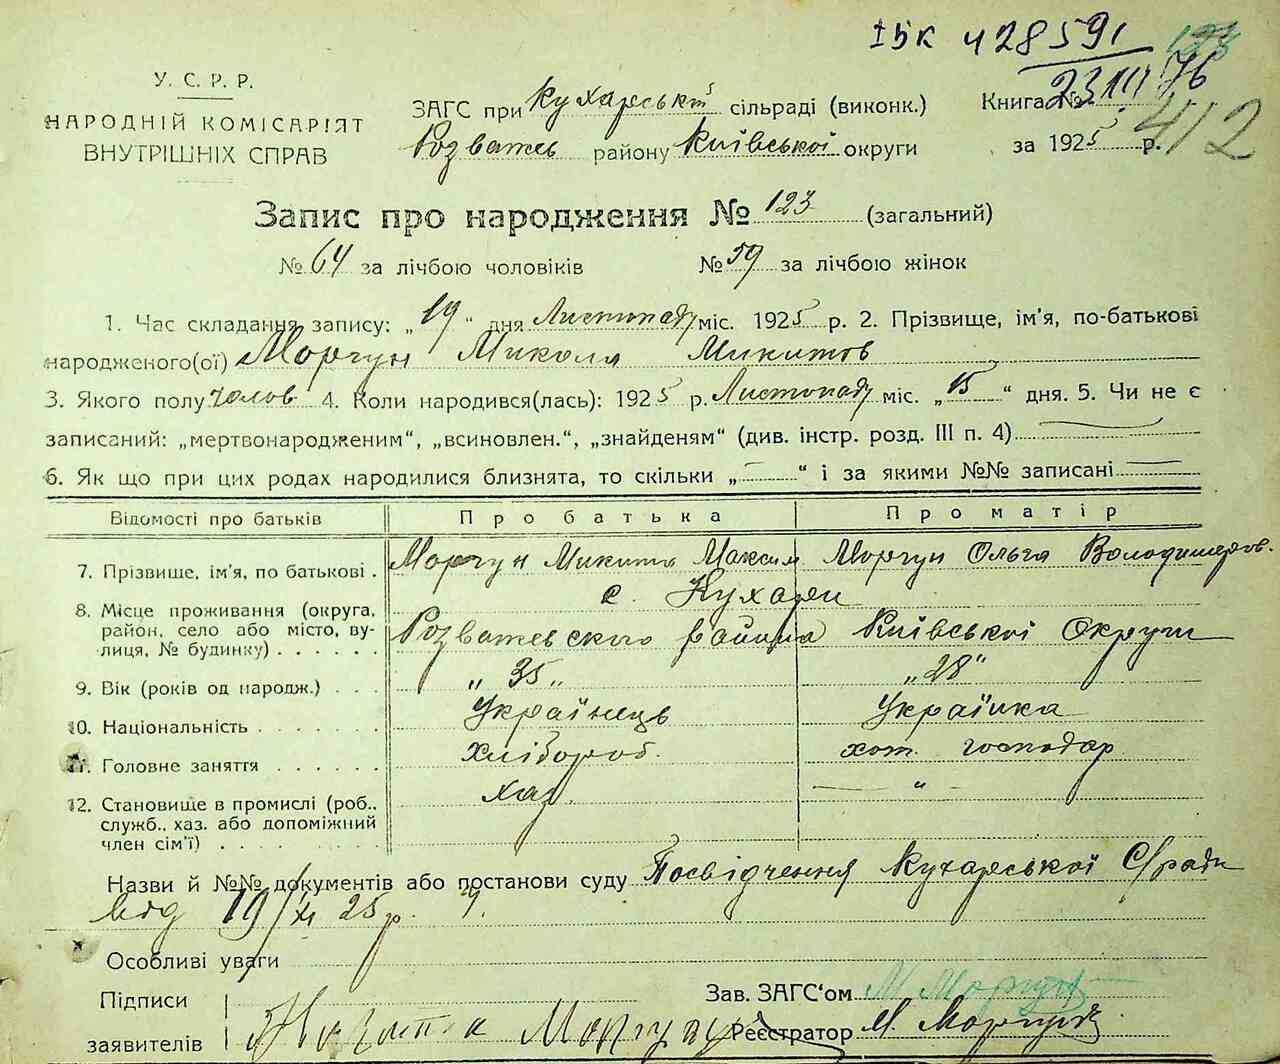 ІБК 428591
23 III 76
412
У. С. Р. Р.
НАРОДНІЙ КОМІСАРІЯТ
ВНУТРІШНІХ СПРАВ
ЗАГС при Кухарській сільраді (виконк.)
Розважев району Київської округи
Книга №
за 1925 р.
Запис про народження № 123 (загальний)
№ 64 за лічбою чоловіків № 59 за лічбою жінок
1. Час складання запису: „19“ дня Листопаду міс. 1925 р. 2. Прізвище, ім'я, по-батькові
народженого(ої) Моргун Микола Микитов
3. Якого полу чолов 4. Коли народився(лась): 1925 р. Листопаду міс. „15“ дня. 5. Чи не є
записаний: „мертвонародженим“, „всиновлен.“, „знайденям“ (див. інстр. розд. III п. 4)
6. Як що при цих родах народилися близнята, то скільки „—“ і за якими №№ записані —
Відомості про батьків Про батька Про матір
7. Прізвише, ім'я, по батькові . Моргун Микита Максим Моргун Ольга Володимиров.
8. Місце проживання (округа, с. Кухари
район, село або місто, ву- Розважевского района Київської Округи
лиця, № будинку) . . . . . .
9. Вік (років од народж.) . . . „35„ „28“
10. Національність . . . . . . . Українець Українка
11. Головне заняття . . . . . . хлібороб. хот. господар
12. Становище в промислі (роб., хаз. — „ —
служб., хаз. або допоміжний
член сім'ї) . . . . . . . . .
Назви й №№ документів або постанови суду Посвідчення Кухарської С/ради
від 19/XI 25 р.
Особливі уваги
Підписи
заявителів Моргун
Зав. ЗАГС'ом М Моргун
Реєстратор М. Моргун